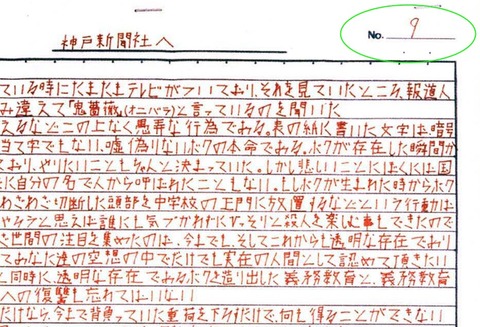 No. 9
神戸新聞社へ
ている時にたまたまテレビがついており、それを見ていたところ、報道人
み違えて「鬼薔薇」(オニバラ)と言っているのを聞いた
えるなどこの上なく愚弄な行為である。表の紙に書いた文字は、暗号
当て字でもない、嘘偽りないボクの本命である。ボクが存在した瞬間か
ており、やりたいこともちゃんと決まっていた。しかし悲しいことにぼくには国
に自分の名で人から呼ばれたこともない。もしボクが生まれた時からボク
わざわざ切断した頭部を中学校の正門に放置するなどという行動は
やろうと思えば誰にも気づかれずにひっそりと殺人を楽しむ事もできたので
ざ世間の注目を集めたのは、今までも、そしてこれからも透明な存在であり
てあなた達の空想の中でだけでも実在の人間として認めて頂きたい
と同時に、透明な存在であるボクを造り出した義務教育と、義務教育
への復讐も忘れてはいない
だけなら、今まで背負っていた重荷を下ろすだけで、何も得ることができない